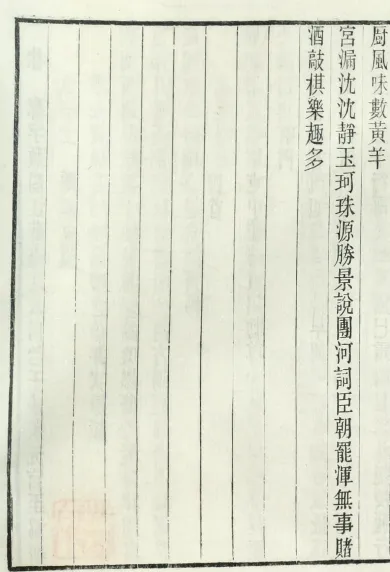 厨風味數黃羊
宮漏沈沈靜玉珂珠源勝景說團河詞臣朝罷渾無事賭
酒敲棋樂趣多